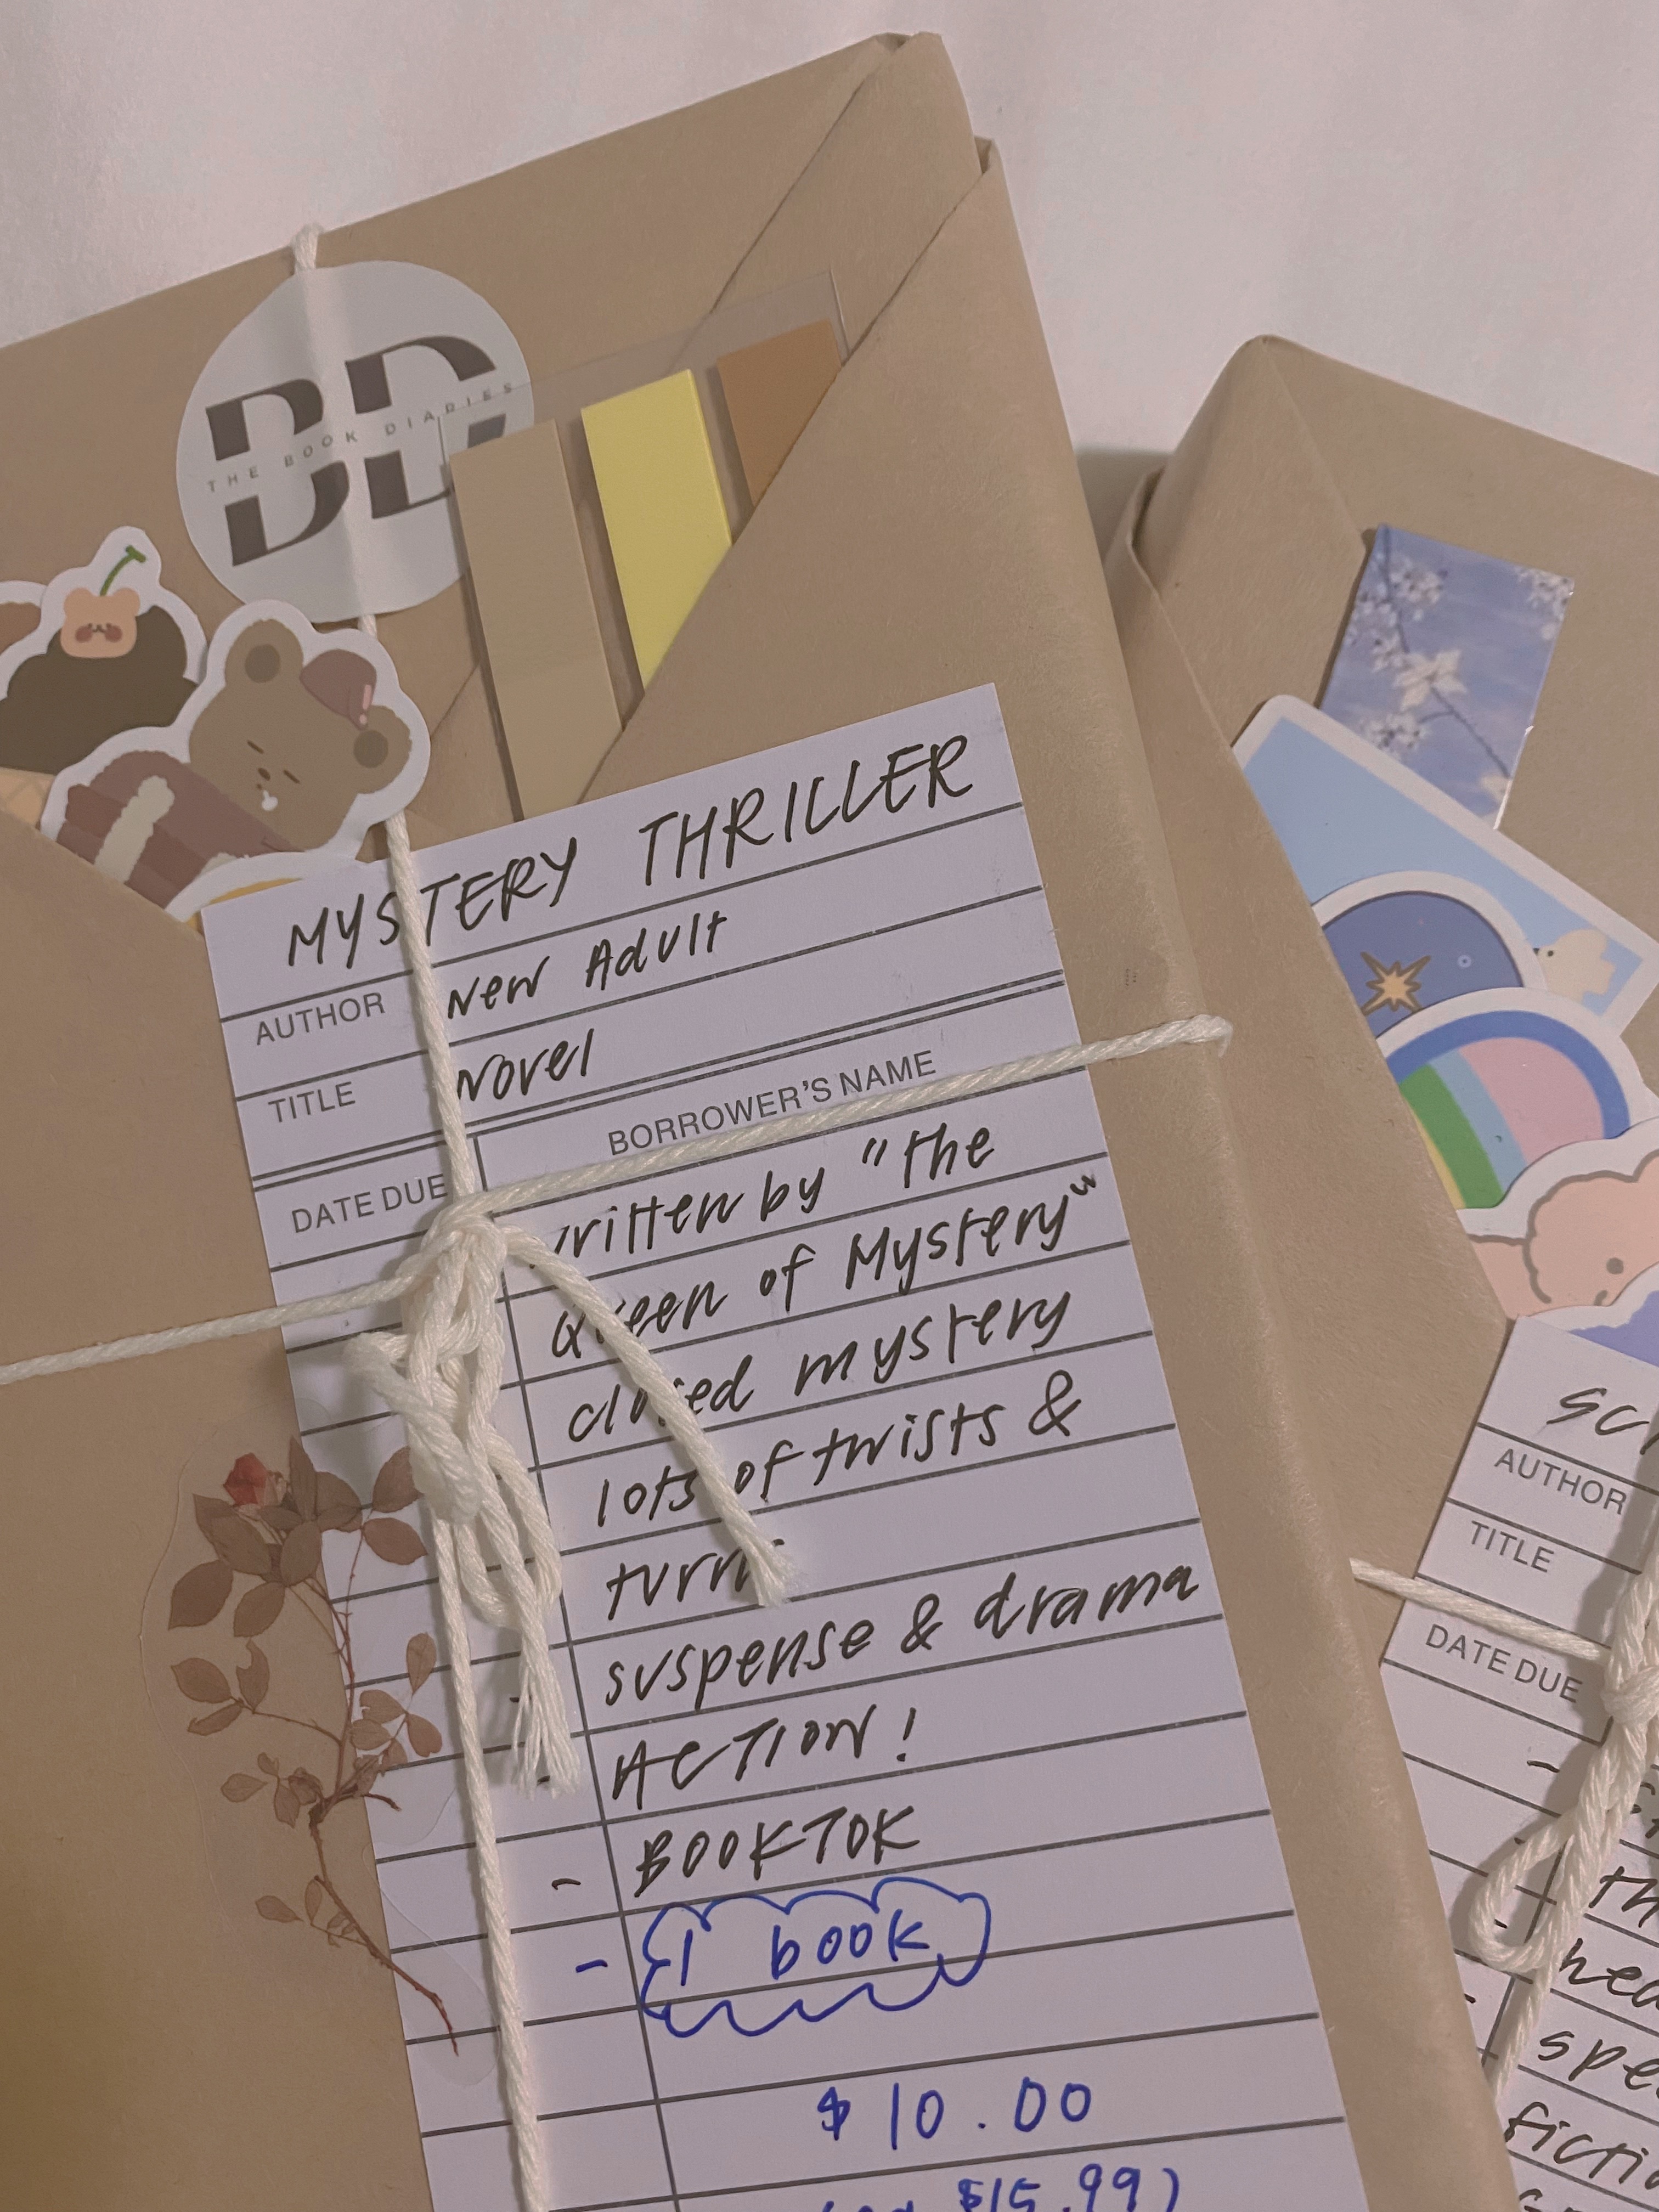 THE BOOK DIARIES
MYSTERY THRILLER
AUTHOR New Adult
TITLE Novel
DATE DUE BORROWER'S NAME
written by "the
Queen of Mystery"
closed mystery
lots of twists &
turns
suspense & drama
- ACTION!
- BOOKTOK
- 1 book
$10.00
$15.99)
AUTHOR
TITLE
DATE DUE